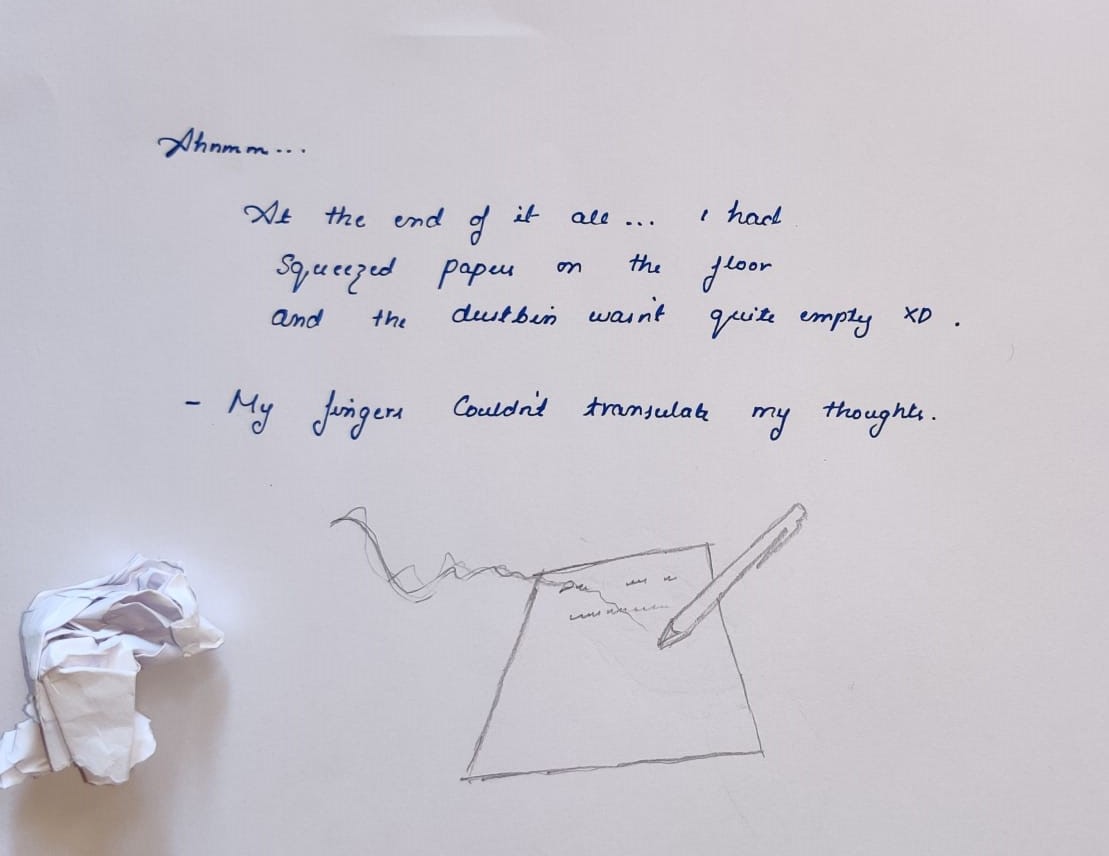 Ahnmm...
At the end of it all... I had
squeezed papers on the floor
and the dustbin wasn't quite empty XD.
- My fingers Couldn't transulate my thoughts.